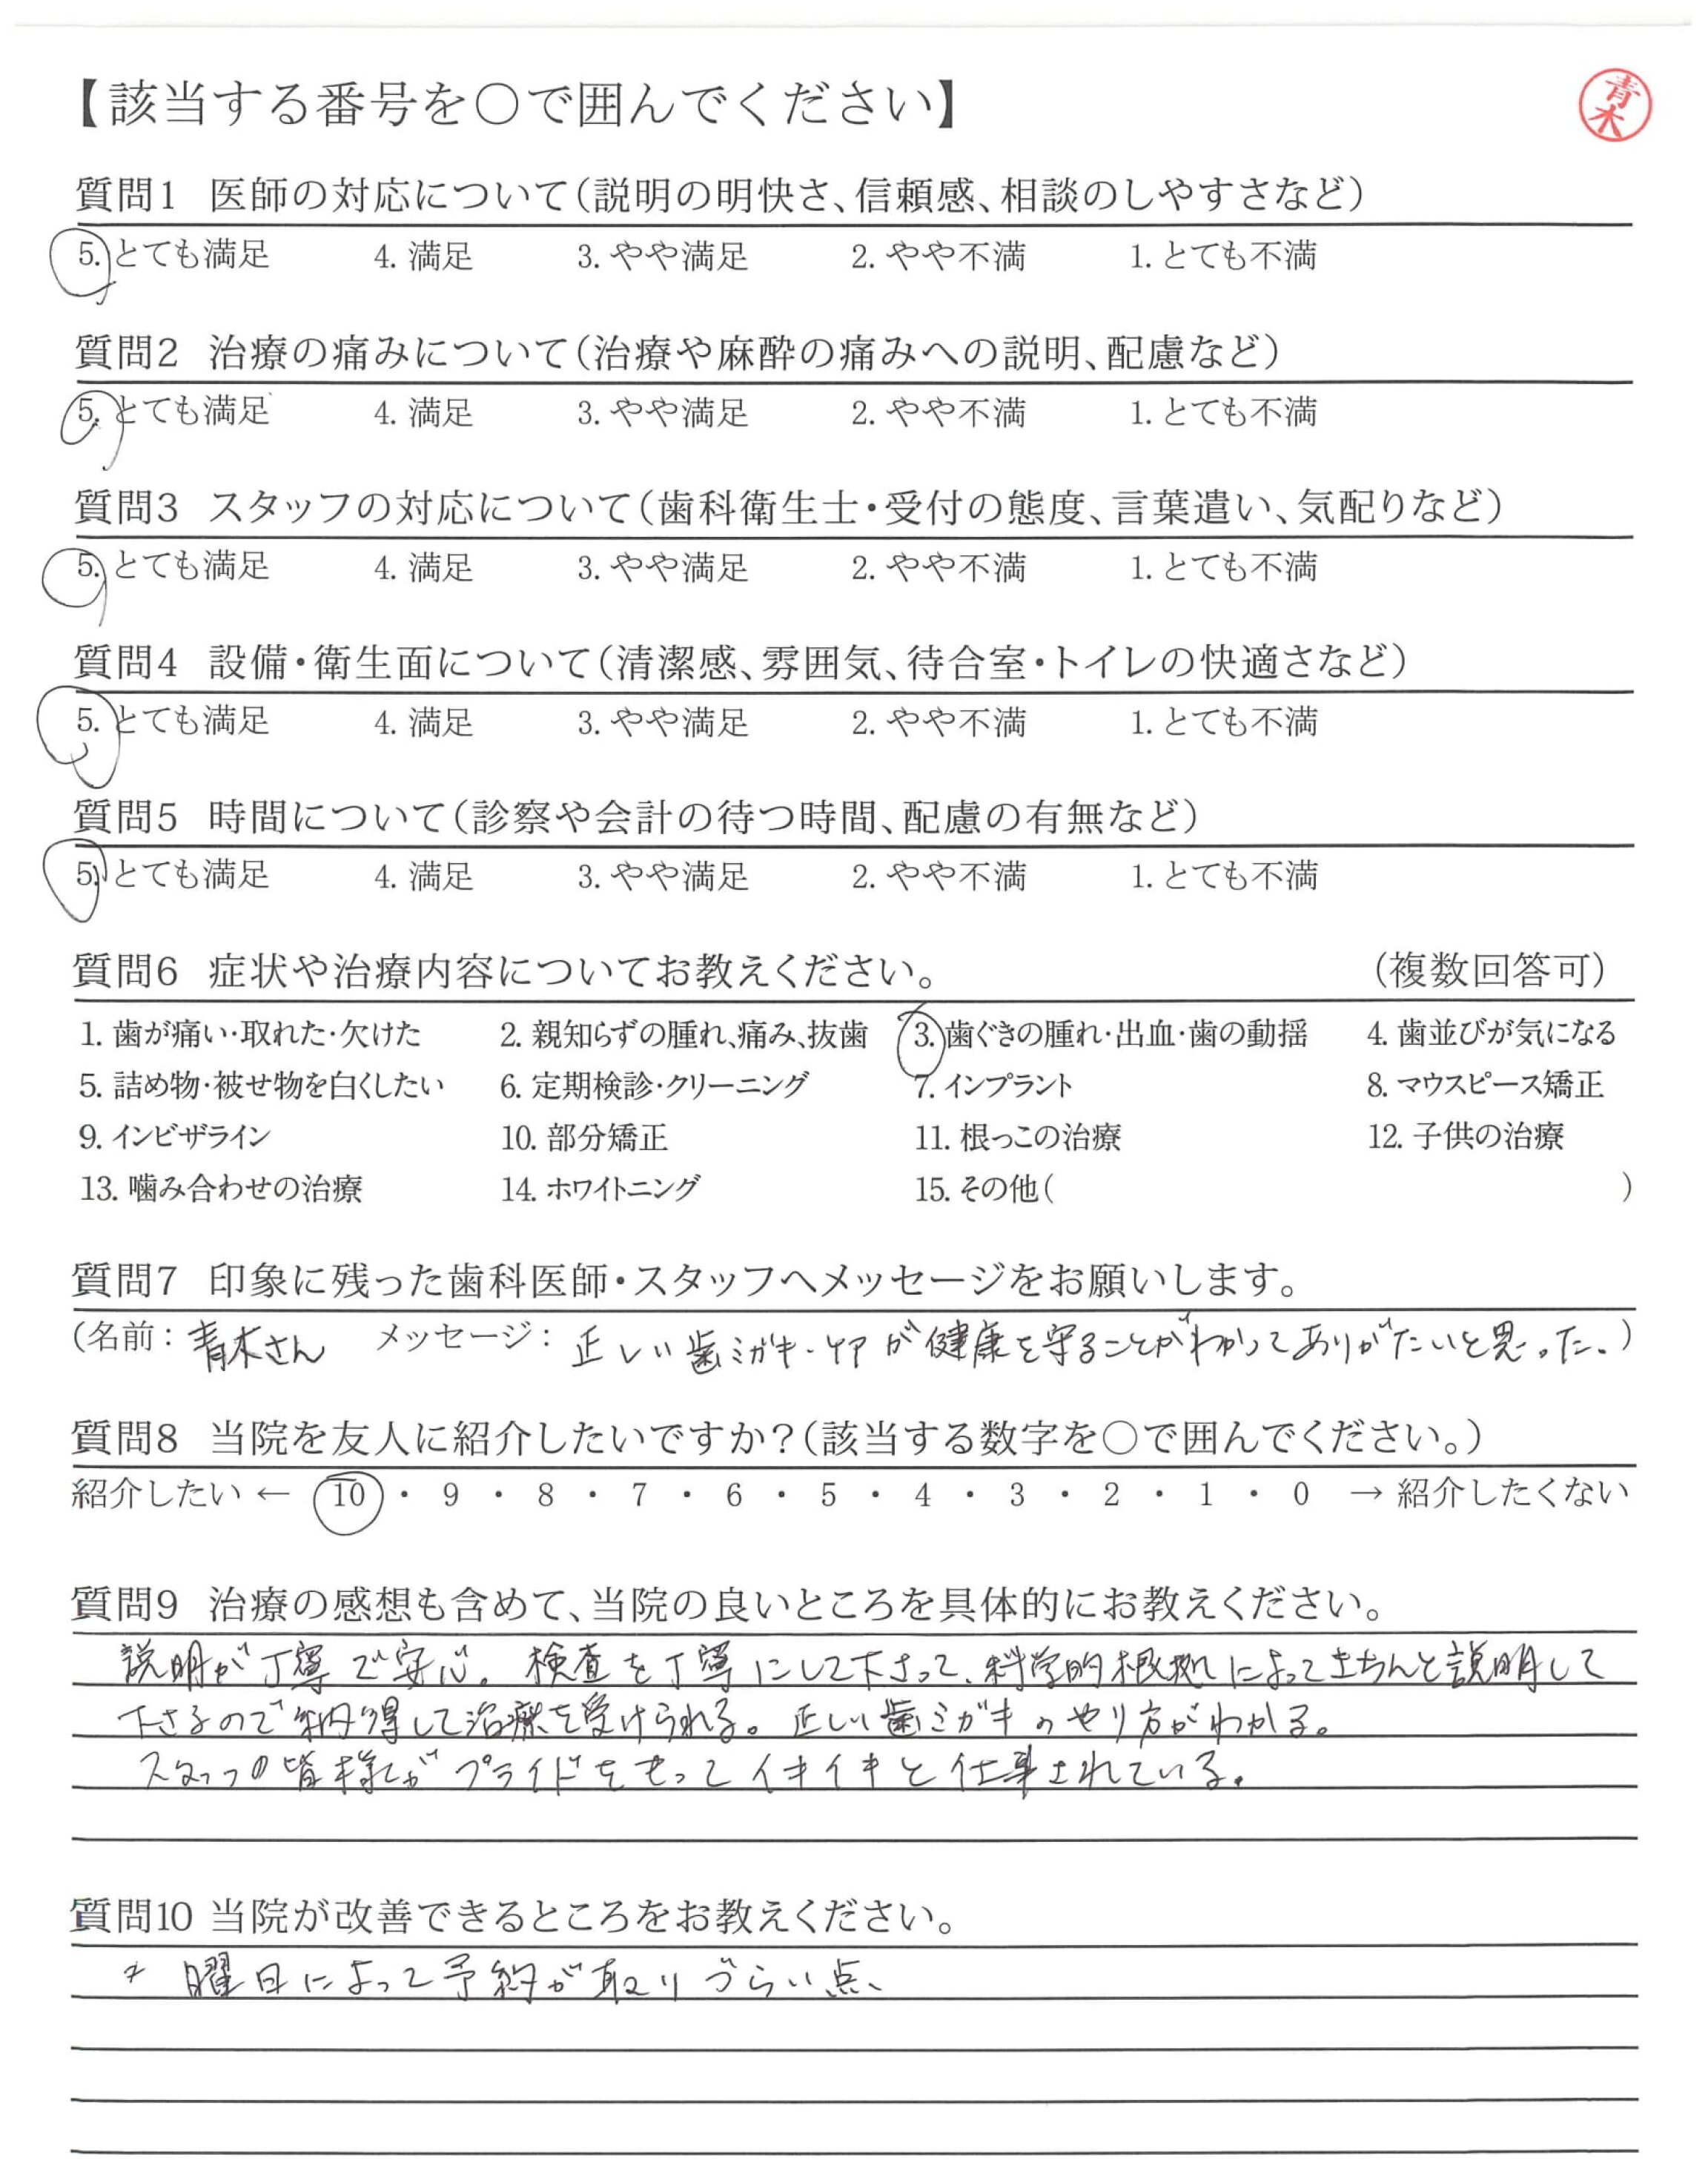 【該当する番号を○で囲んでください】
青木
質問1 医師の対応について(説明の明快さ、信頼感、相談のしやすさなど)
5. とても満足 4. 満足 3. やや満足 2. やや不満 1. とても不満
質問2 治療の痛みについて(治療や麻酔の痛みへの説明、配慮など)
5. とても満足 4. 満足 3. やや満足 2. やや不満 1. とても不満
質問3 スタッフの対応について(歯科衛生士・受付の態度、言葉遣い、気配りなど)
5. とても満足 4. 満足 3. やや満足 2. やや不満 1. とても不満
質問4 設備・衛生面について(清潔感、雰囲気、待合室・トイレの快適さなど)
5. とても満足 4. 満足 3. やや満足 2. やや不満 1. とても不満
質問5 時間について(診察や会計の待つ時間、配慮の有無など)
5. とても満足 4. 満足 3. やや満足 2. やや不満 1. とても不満
質問6 症状や治療内容についてお教えください。 (複数回答可)
1. 歯が痛い・取れた・欠けた 2. 親知らずの腫れ、痛み、抜歯 3. 歯ぐきの腫れ・出血・歯の動揺 4. 歯並びが気になる
5. 詰め物・被せ物を白くしたい 6. 定期検診・クリーニング 7. インプラント 8. マウスピース矯正
9. インビザライン 10. 部分矯正 11. 根っこの治療 12. 子供の治療
13. 噛み合わせの治療 14. ホワイトニング 15. その他( )
質問7 印象に残った歯科医師・スタッフへメッセージをお願いします。
(名前: 青木さん メッセージ: 正しい歯ミガキ・ケアが健康を守ることがわかってありがたいと思った。)
質問8 当院を友人に紹介したいですか?(該当する数字を○で囲んでください。)
紹介したい ← 10 ・ 9 ・ 8 ・ 7 ・ 6 ・ 5 ・ 4 ・ 3 ・ 2 ・ 1 ・ 0 → 紹介したくない
質問9 治療の感想も含めて、当院の良いところを具体的にお教えください。
説明が丁寧で安心。検査を丁寧にして下さって、科学的根拠によってきちんと説明して
下さるので納得して治療を受けられる。正しい歯ミガキのやり方がわかる。
スタッフの皆様がプライドをもってイキイキと仕事されている。
質問10 当院が改善できるところをお教えください。
曜日によって予約が取りづらい点、